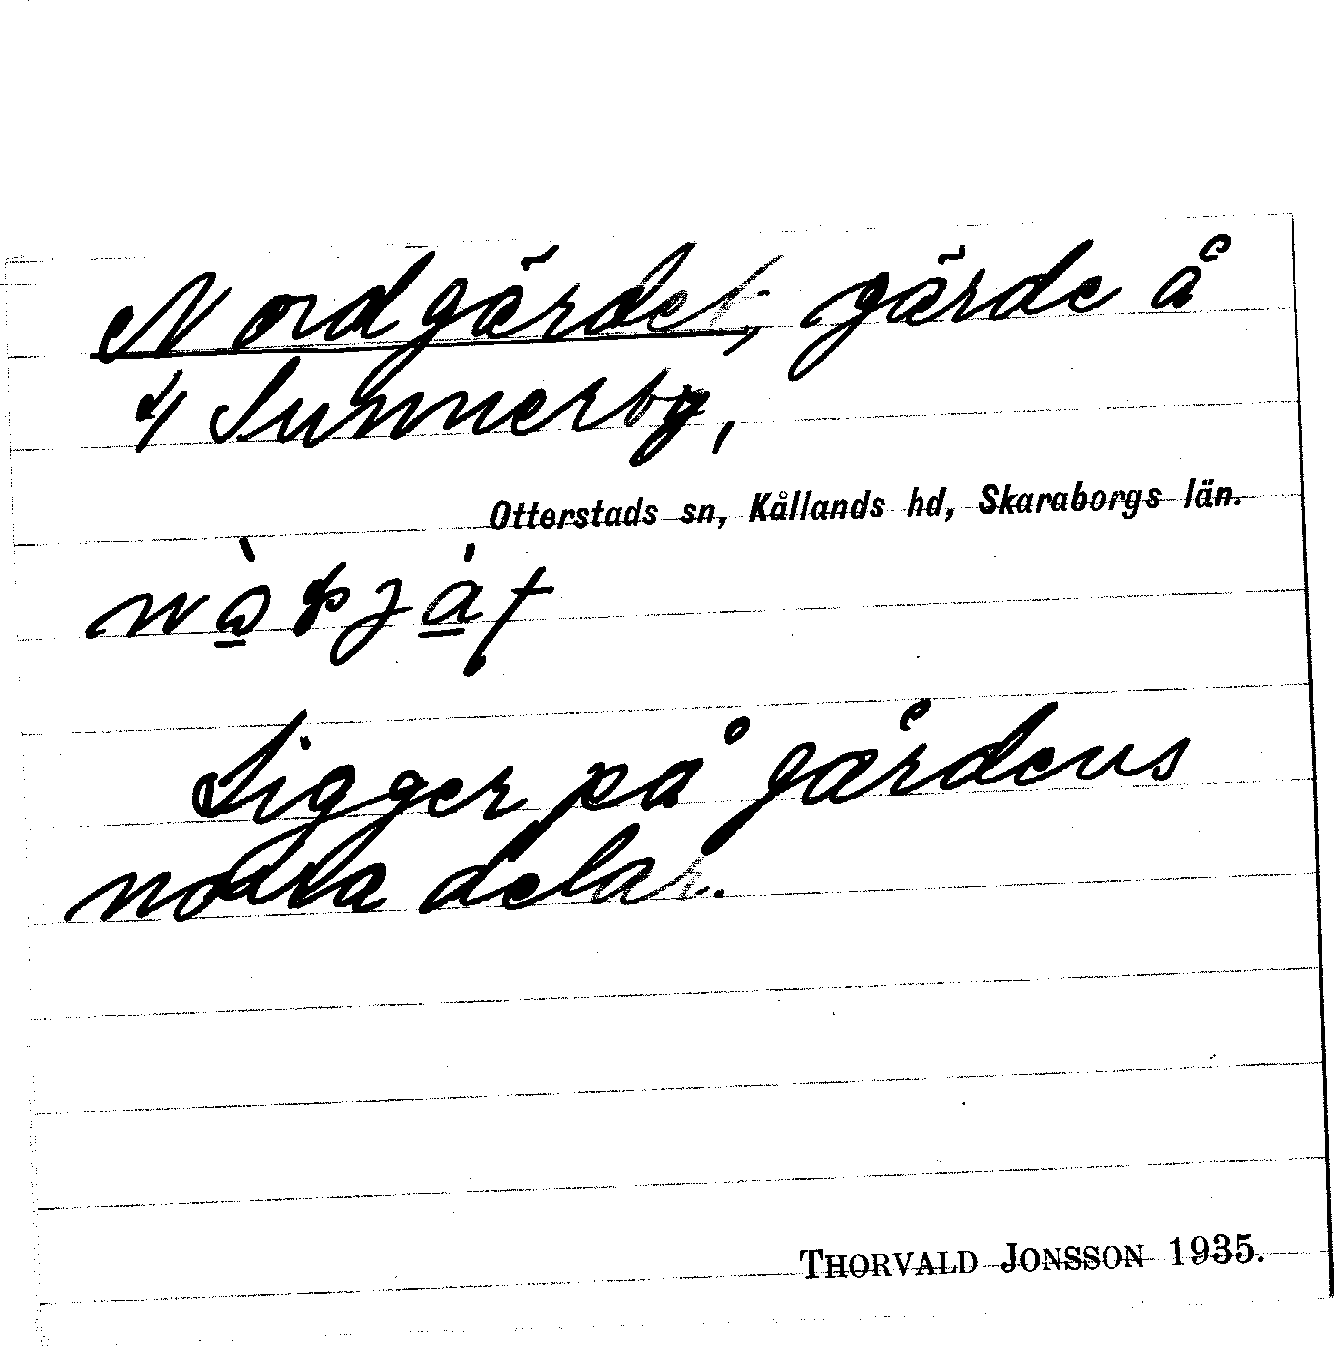 Nordgärdet, gärde å
4 Sunnerby,
Otterstads sn, Kållands hd, Skaraborgs län.
Ligger på gårdens
norra delar.
THORVALD JONSSON 1935.